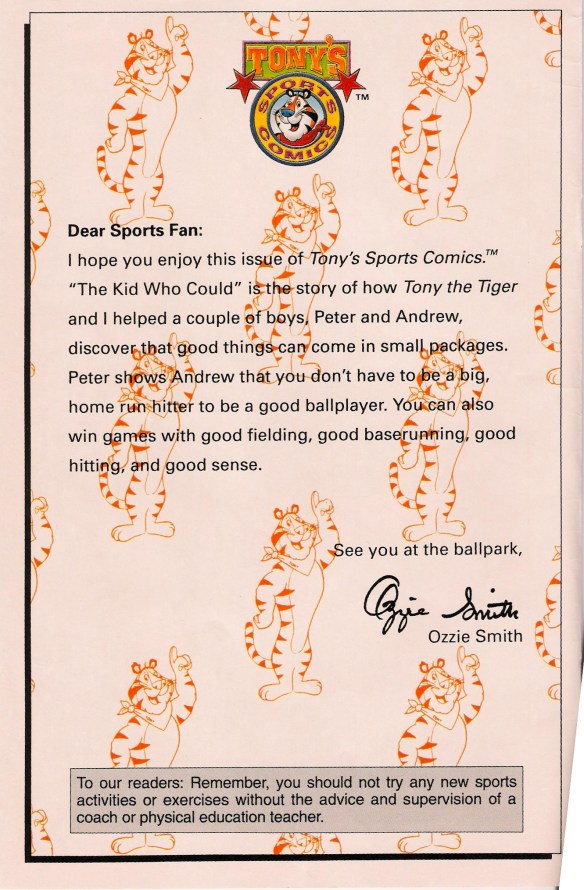 TONY'S
SPORTS
COMICS
TM
Dear Sports Fan:
I hope you enjoy this issue of Tony's Sports Comics.™
“The Kid Who Could” is the story of how Tony the Tiger
and I helped a couple of boys, Peter and Andrew,
discover that good things can come in small packages.
Peter shows Andrew that you don't have to be a big,
home run hitter to be a good ballplayer. You can also
win games with good fielding, good baserunning, good
hitting, and good sense.
See you at the ballpark,
Ozzie Smith
Ozzie Smith
To our readers: Remember, you should not try any new sports
activities or exercises without the advice and supervision of a
coach or physical education teacher.